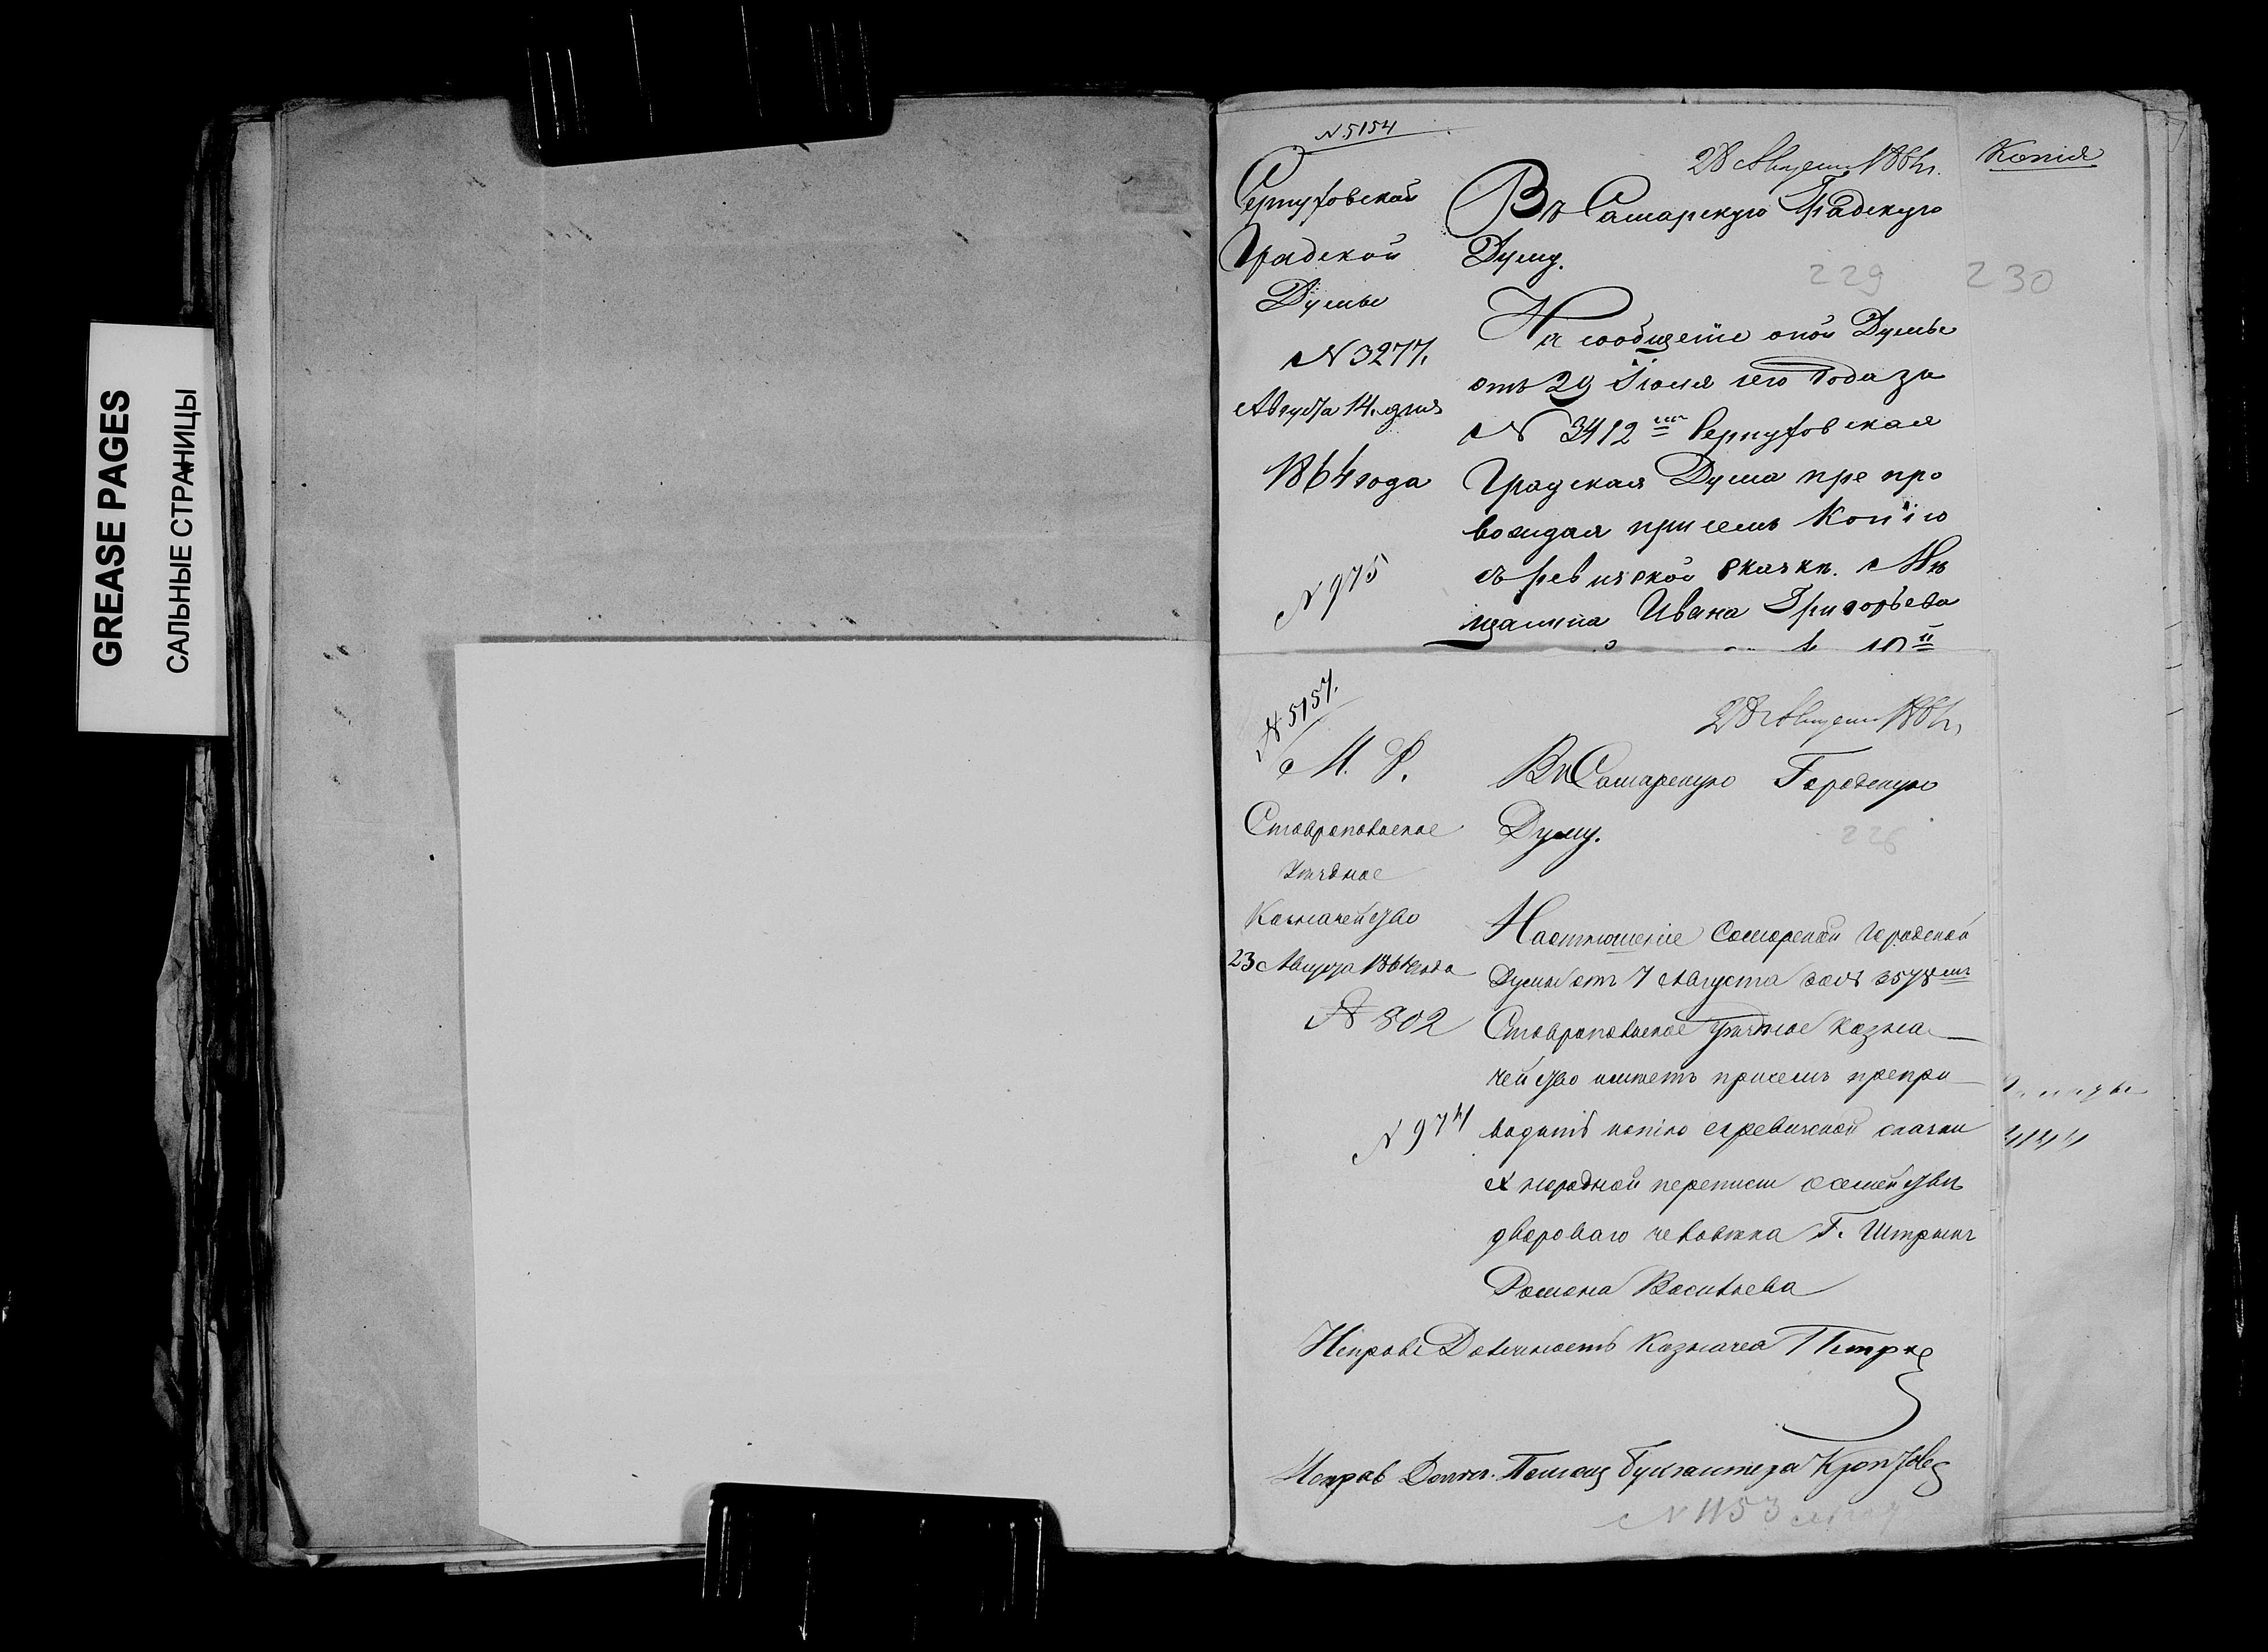 GREASE PAGES
САЛЬНЫЕ СТРАНИЦЫ
N 5154
28 Августа 1864 г.
Копія
Серпуховской
Градской
Думы
N 3277.
Августа 14. дня
1864 года
N 975
Въ Самарскую Градскую
Думу.
229
230
На сообщеніе оной Думы
отъ 29 Іюля сего года за
N 3412 Серпуховская
Градская Дума препро
вождая при семъ Копію
съ ревизской сказки. Мѣ
щанина Ивана Григорьева
N 5157.
28 Августа 1864 г.
М. Ф.
Ставропольское
Уѣздное
Казначейство
23 Августа 1864 года
N 802
N 974
Въ Самарскую Городскую
Думу.
226
На отношеніе Самарской Городской
Думы отъ 7 Августа за N 3578
Ставропольское Уѣздное Казна
чейство имѣетъ при семъ препро
водить копію съ ревизской сказки
X народной переписи о семействѣ
двороваго человѣка Г.
Романа Васильева
Исправ Должность Казначея
Исправ Должн. Помощ Бухгалтера
N 1153